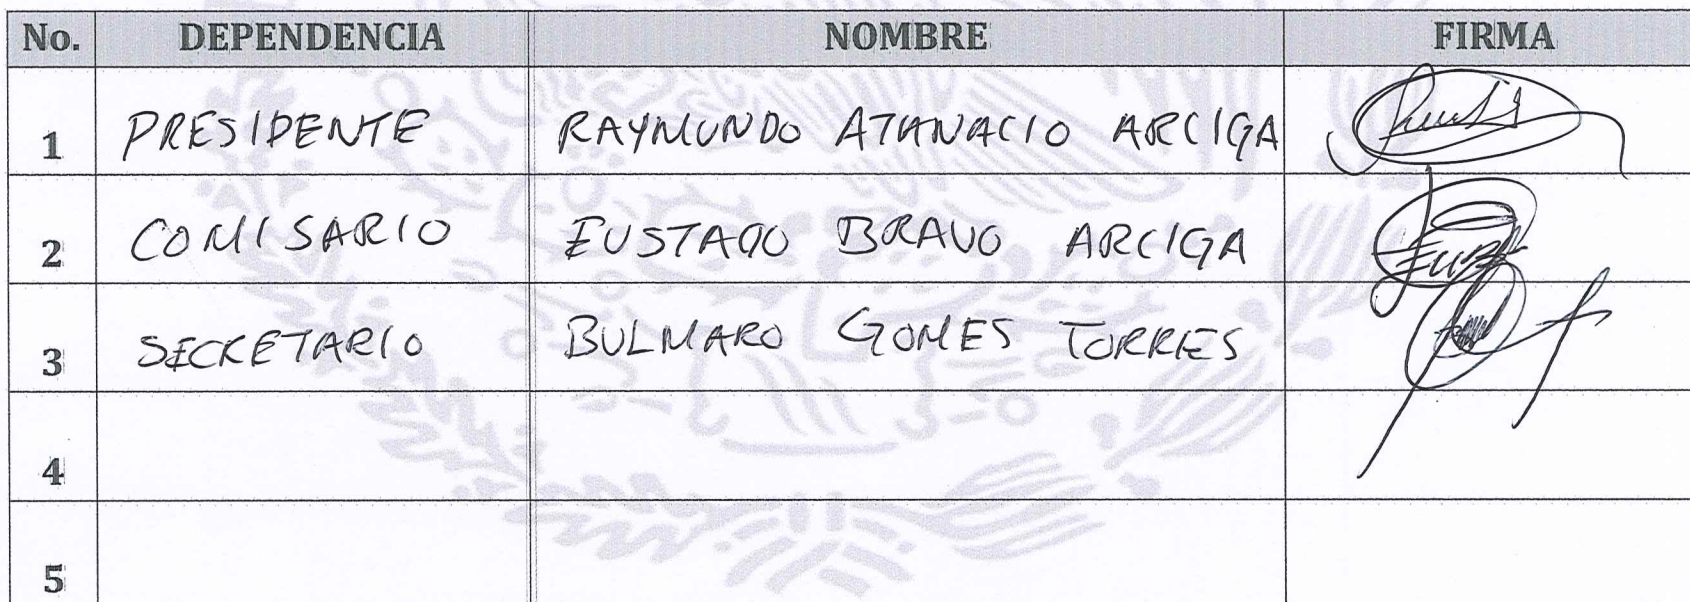 No. DEPENDENCIA NOMBRE FIRMA
1 PRESIDENTE RAYMUNDO ATANACIO ARCIGA
2 COMISARIO EUSTAQO BRAVO ARCIGA
3 SECRETARIO BULMARO GOMES TORRES
4
5